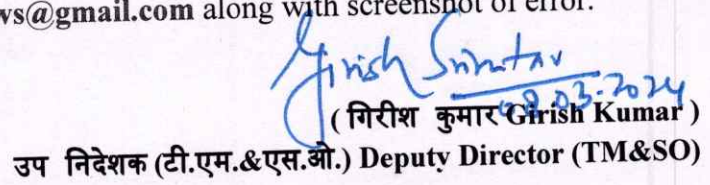 ws@gmail.com along with screenshot of error.
Girish
08.03.2024
( गिरीश कुमार Girish Kumar )
उप निदेशक (टी.एम.&एस.ओ.) Deputy Director (TM&SO)